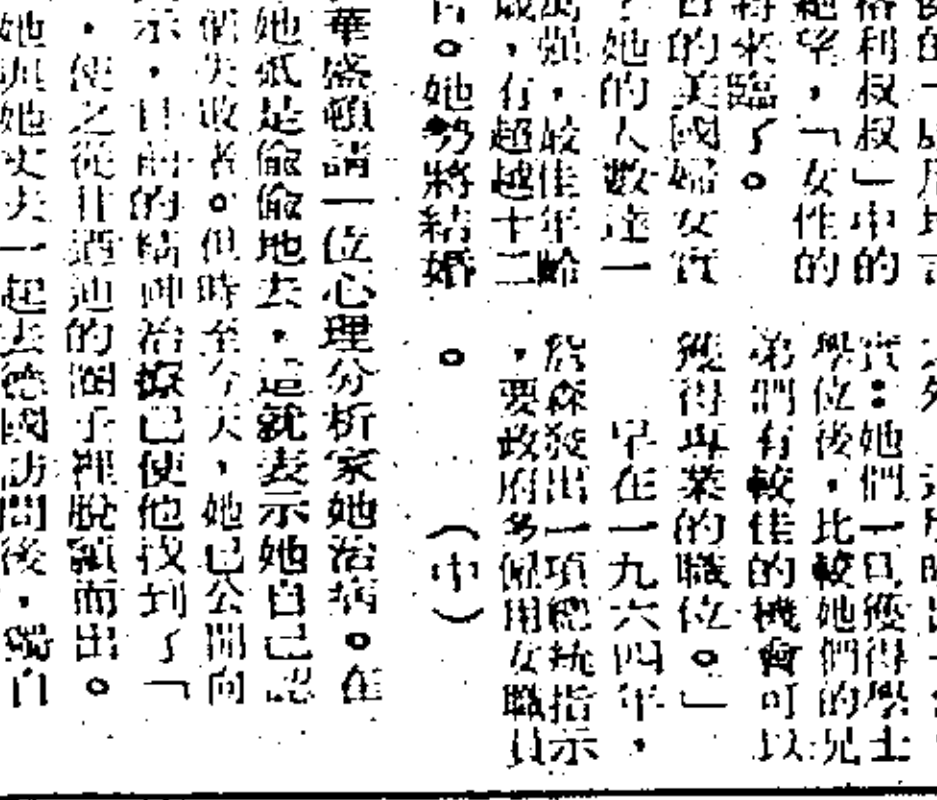 格利叔叔」中的
絕望,「女性的
將來臨了。
的美國婦女實
她的人數達一
萬強,較佳年齡
歲,有超越十二
。她勢將結婚
實:她們一旦獲得學士
學位後,比較她們的兄
弟們有較佳的機會可以
獲得專業的職位。」
早在一九六四年,
詹森發出一項總統指示
,要政府多僱用女職員
。 (中)
華盛頓請一位心理分析家她治病。在
她祇是偷偷地去,這就表示她自己認
失敗者。但時至今天,她已公開向
示,目前的精神治療已使他找到了「
,使之從甘迺迪的圈子裡脫穎而出。
她跟她丈夫一起去德國訪問後,獨自